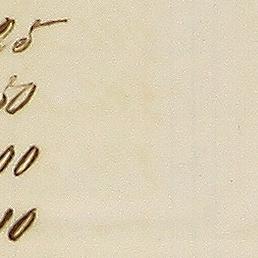 25
50
00
00